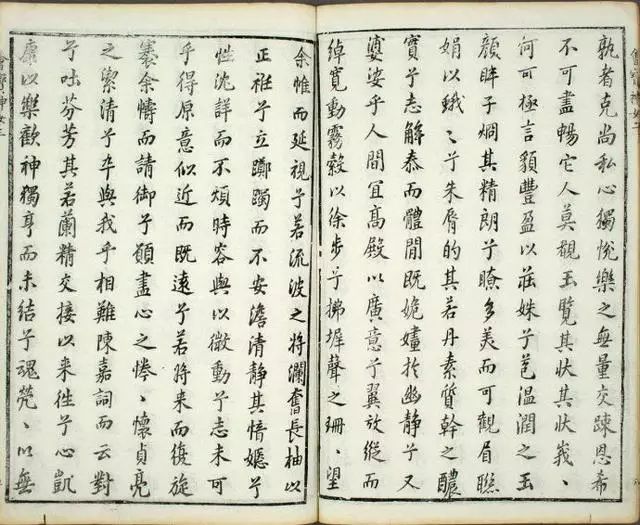 孰者克尚私心獨悅樂之無量交踈恩希
不可盡暢它人莫覩玉覽其狀其狀峩〻
何可極言貌豐盈以莊姝兮苞温潤之玉
顏眸子烱其精朗兮瞭多美而可觀眉聮
娟以蛾〻兮朱脣的其若丹素質幹之醲
實兮志解泰而體閒既姽嫿於幽静兮又
婆娑乎人間宜髙殿以廣意兮翼放縱而
綽寛動霧縠以徐步兮拂墀聲之珊〻望
余惟而延視兮若流波之將瀾奮長袖以
正衽兮立躑躅而不安澹清静其愔嫕兮
性沈詳而不煩時容與以微動兮志未可
乎得原意似近而既遠兮若将来而復旋
褰余幬而請御兮願盡心之惓〻懷貞亮
之絜清兮卒與我乎相難陳嘉詞而云對
兮吐芬芳其若蘭精交接以来徃兮心凱
康以樂歡神獨亨而未结兮魂煢〻以無